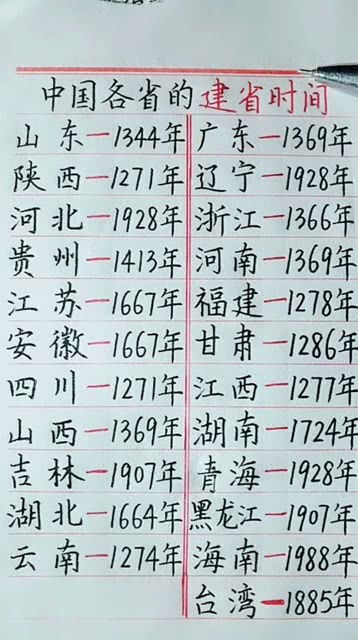 中国各省的建省时间
山东—1344年 广东—1369年
陕西—1271年 辽宁—1928年
河北—1928年 浙江—1366年
贵州—1413年 河南—1369年
江苏—1667年 福建—1278年
安徽—1667年 甘肃—1286年
四川—1271年 江西—1277年
山西—1369年 湖南—1724年
吉林—1907年 青海—1928年
湖北—1664年 黑龙江—1907年
云南—1274年 海南—1988年
台湾—1885年